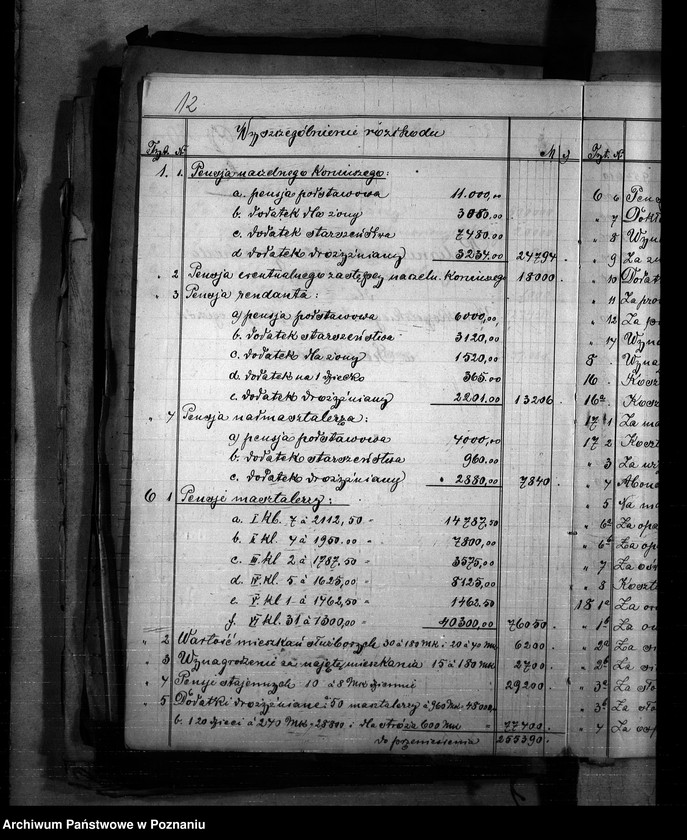 12
Wyszczególnienie rozchodu
Tyt. № M
1. 1. Pensja naczelnego Koniuszego:
a. pensja podstawowa 11.000,00
b. dodatek dla żony 3080.00
c. dodatek starszeństwa 7480.00
d dodatek drożyźniany 3234.00 24794
" 2 Pensja ewentualnego zastępcy naczeln. Koniuszego 18000
" 3 Pensja rendanta:
a) pensja podstawowa 6000,00,
b. dodatek starszeństwa 3120.00
c. dodatek dla żony 1520.00
d. dodatek na 1 dziecko 365.00
e. dodatek drożyźniany 2201.00 13206
" 4 Pensja nadmasztalerza:
a) pensja podstawowa 4000,00
b. dodatek starszeństwa 960.00
c. dodatek drożyźniany 2880.00 7840
6 1 Pensje masztalerzy:
a. I kl. 7 à 2112,50 14787.50
b. II kl. 4 à 1950.00 7800,00
c. III kl 2 à 1787.50 3575,00
d. IV kl. 5 à 1625,00 8125,00
e V. kl 1 à 1462,50 1462.50
f. VI kl. 31 à 1300,00 40300.00 76050
" 2 Wartość mieszkań służbowych 30 à 180 Mk i 20 à 40 Mk 6200
" 3 Wynagrodzenie za najęte mieszkania 15 à 180 Mk 2700
" 4 Pensje stajennych 10 à 8 Mk dziennie 29200
" 5 Dodatki drożyźniane: à 50 masztalerzy à 960 Mk 48000
b. 120 dzieci à 240 Mk = 28800 i dla stróża 600 Mk 77400
do przeniesienia 255390
Tyt. №
6 6
" 7
" 8
" 9 Za
" 10
" 11 Za
" 12 Za
" 14
8.
16
16a
17 1 Za
17 2
" 3 Za
" 4
" 5 Na
" 6a Za
" 6b Za
" 7 Za
" 8
18 1a Za
" 1b Za
" 2a Za
" 2b Za
" 3a Za
" 3b Za
" 4 Za
Archiwum Państwowe w Poznaniu